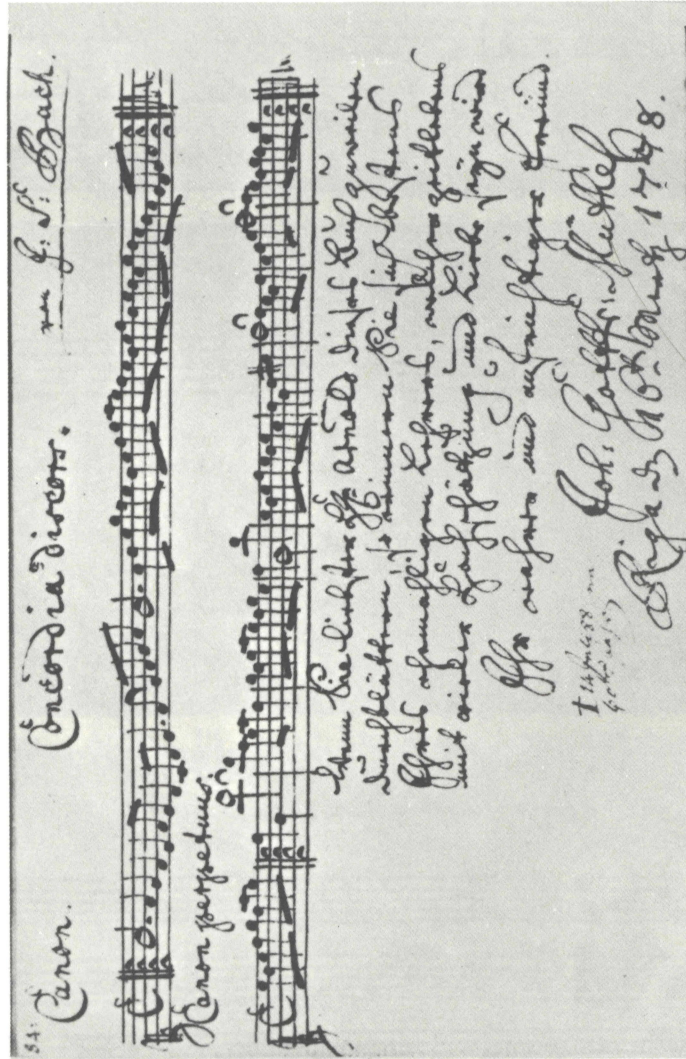 34.
Canon. Concordia discors. von J. S. Bach.
Canon perpetuus.
Wenn Sie liebster Arnold dieses Buch zuweilen
durchblättern, so erinnern Sie sich stets
Ihres ehemaligen Lehrers, welcher zeitlebens
mit vieler Hochschätzung und Liebe seyn wird
Ihr wahrer und aufrichtiger Freund.
Joh: Gottfr: Müthel
Riga